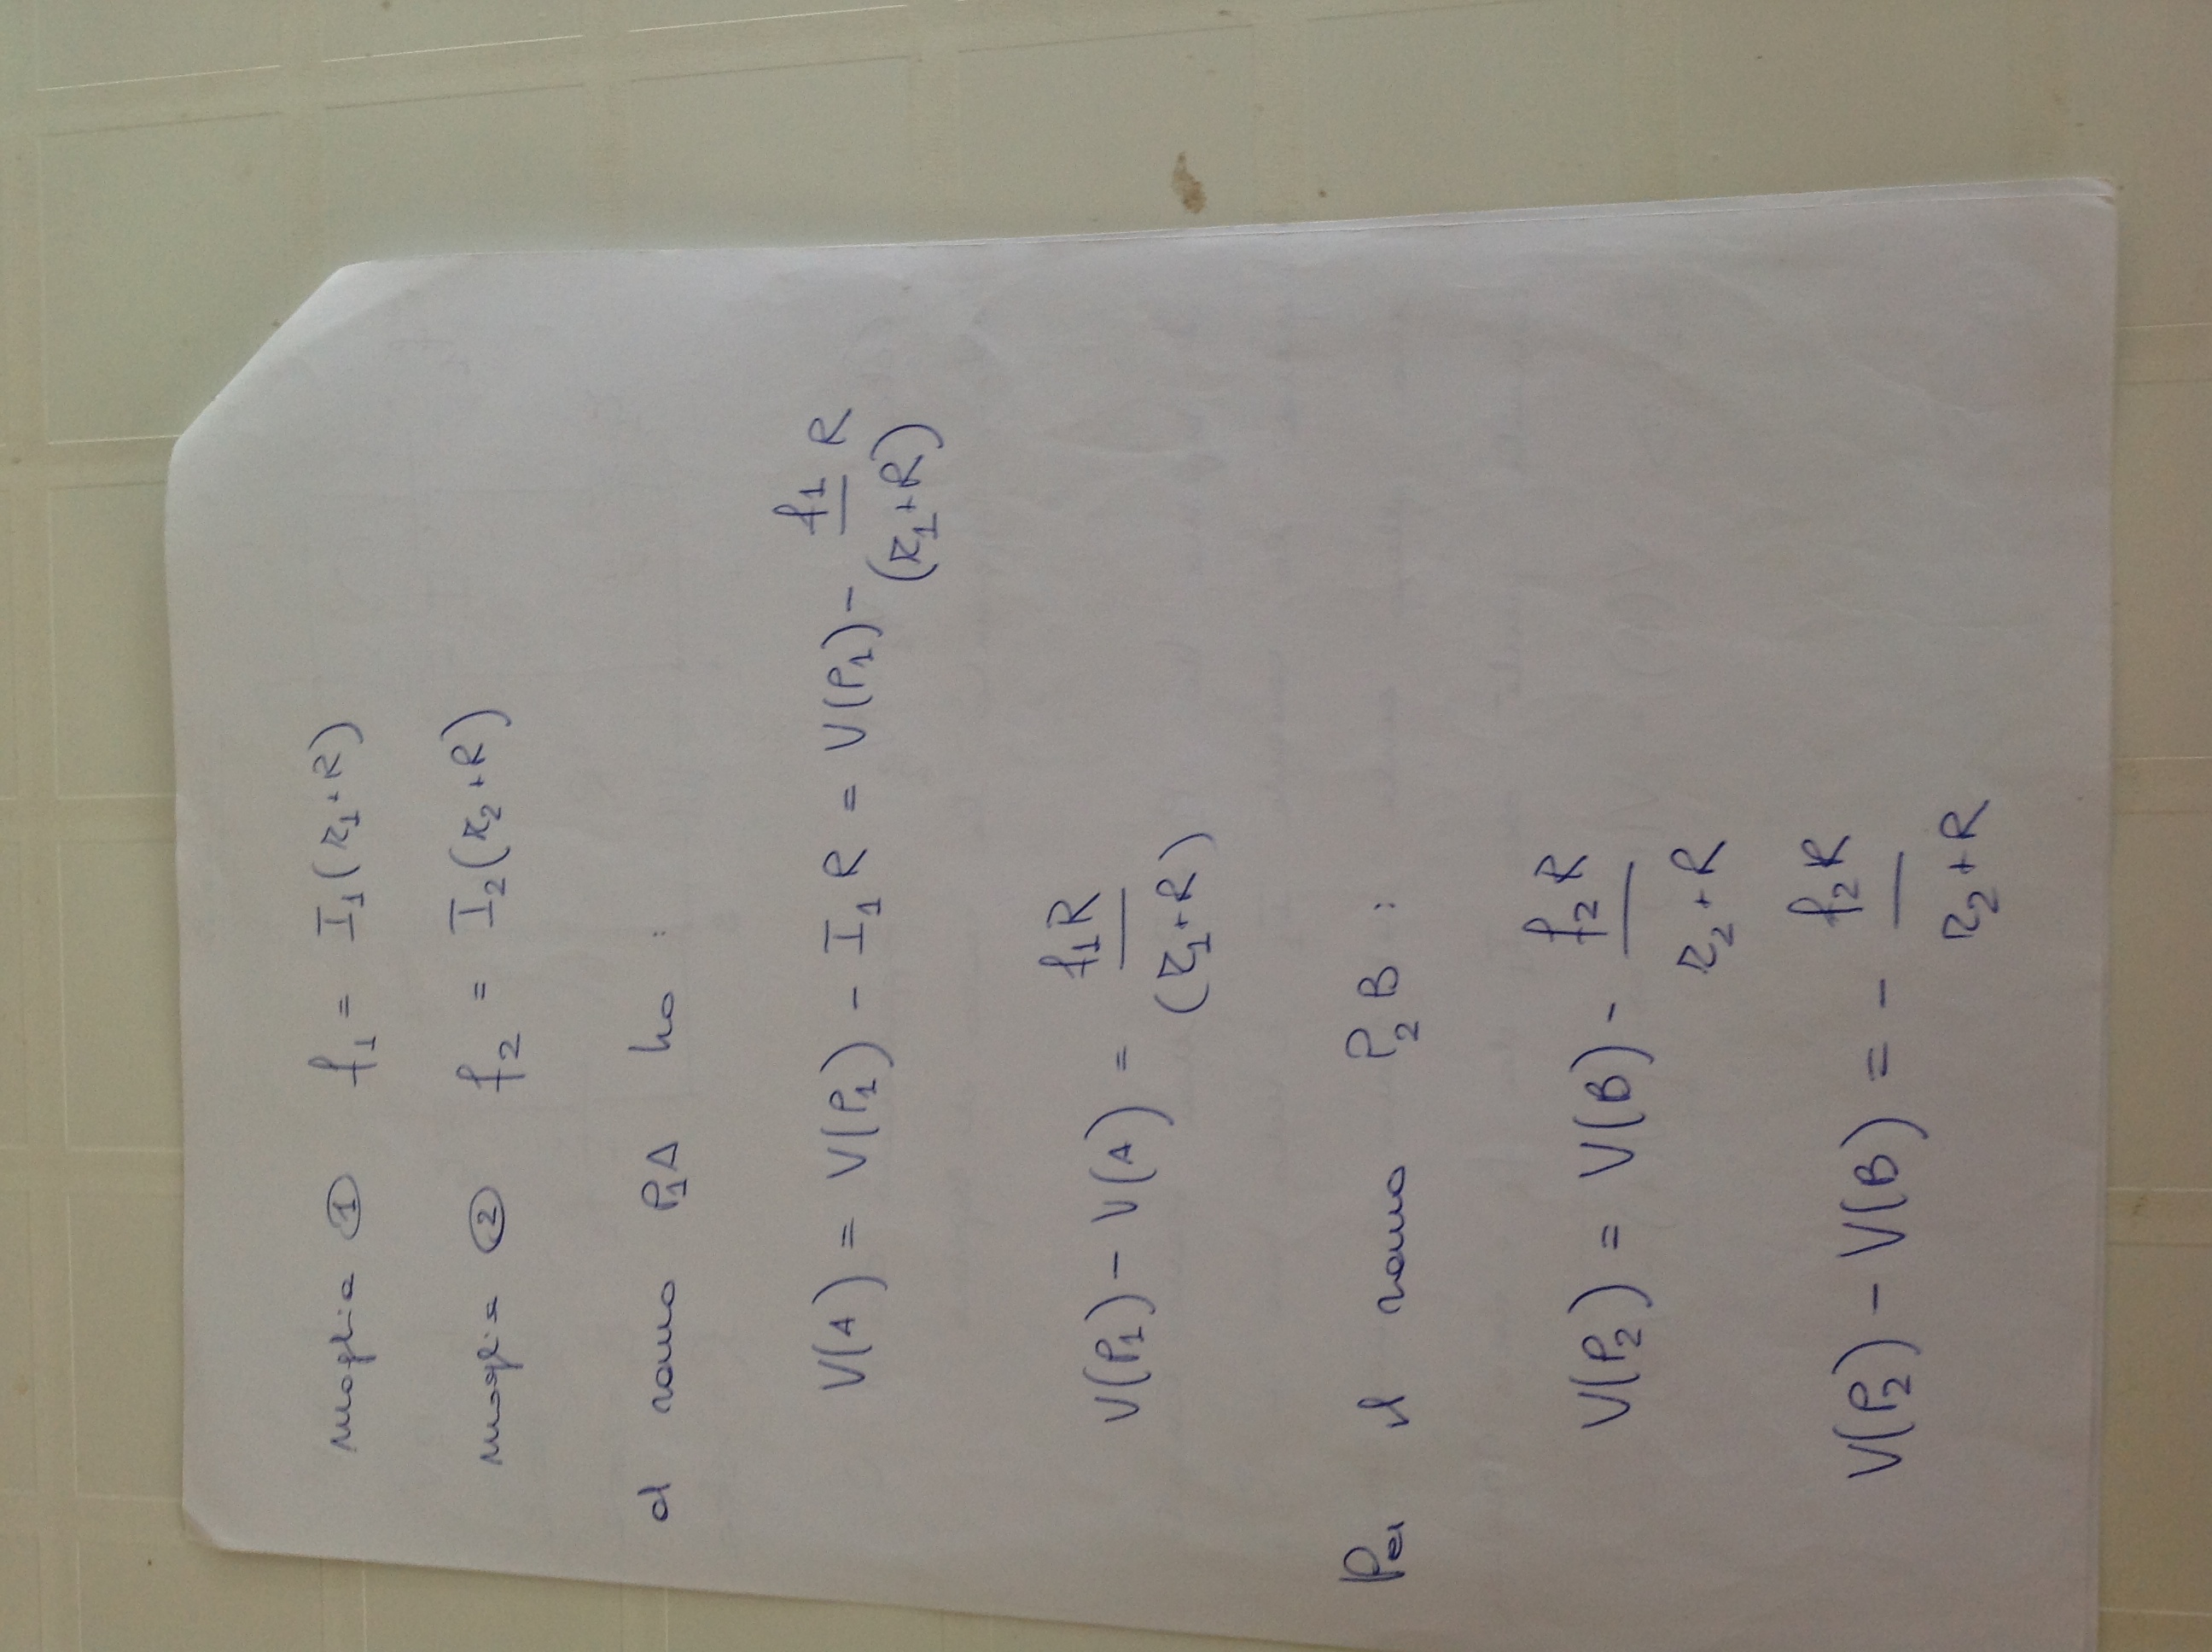 maglia ① f₁ = I₁(r₁+R)
maglia ② f₂ = I₂(r₂+R)
al ramo P₁A ho :
V(A) = V(P₁) - I₁R = V(P₁) - f₁/(r₁+R) R
V(P₁) - V(A) = f₁R/(r₁+R)
Per il ramo P₂B :
V(P₂) = V(B) - f₂R/r₂+R
V(P₂) - V(B) = - f₂R/r₂+R